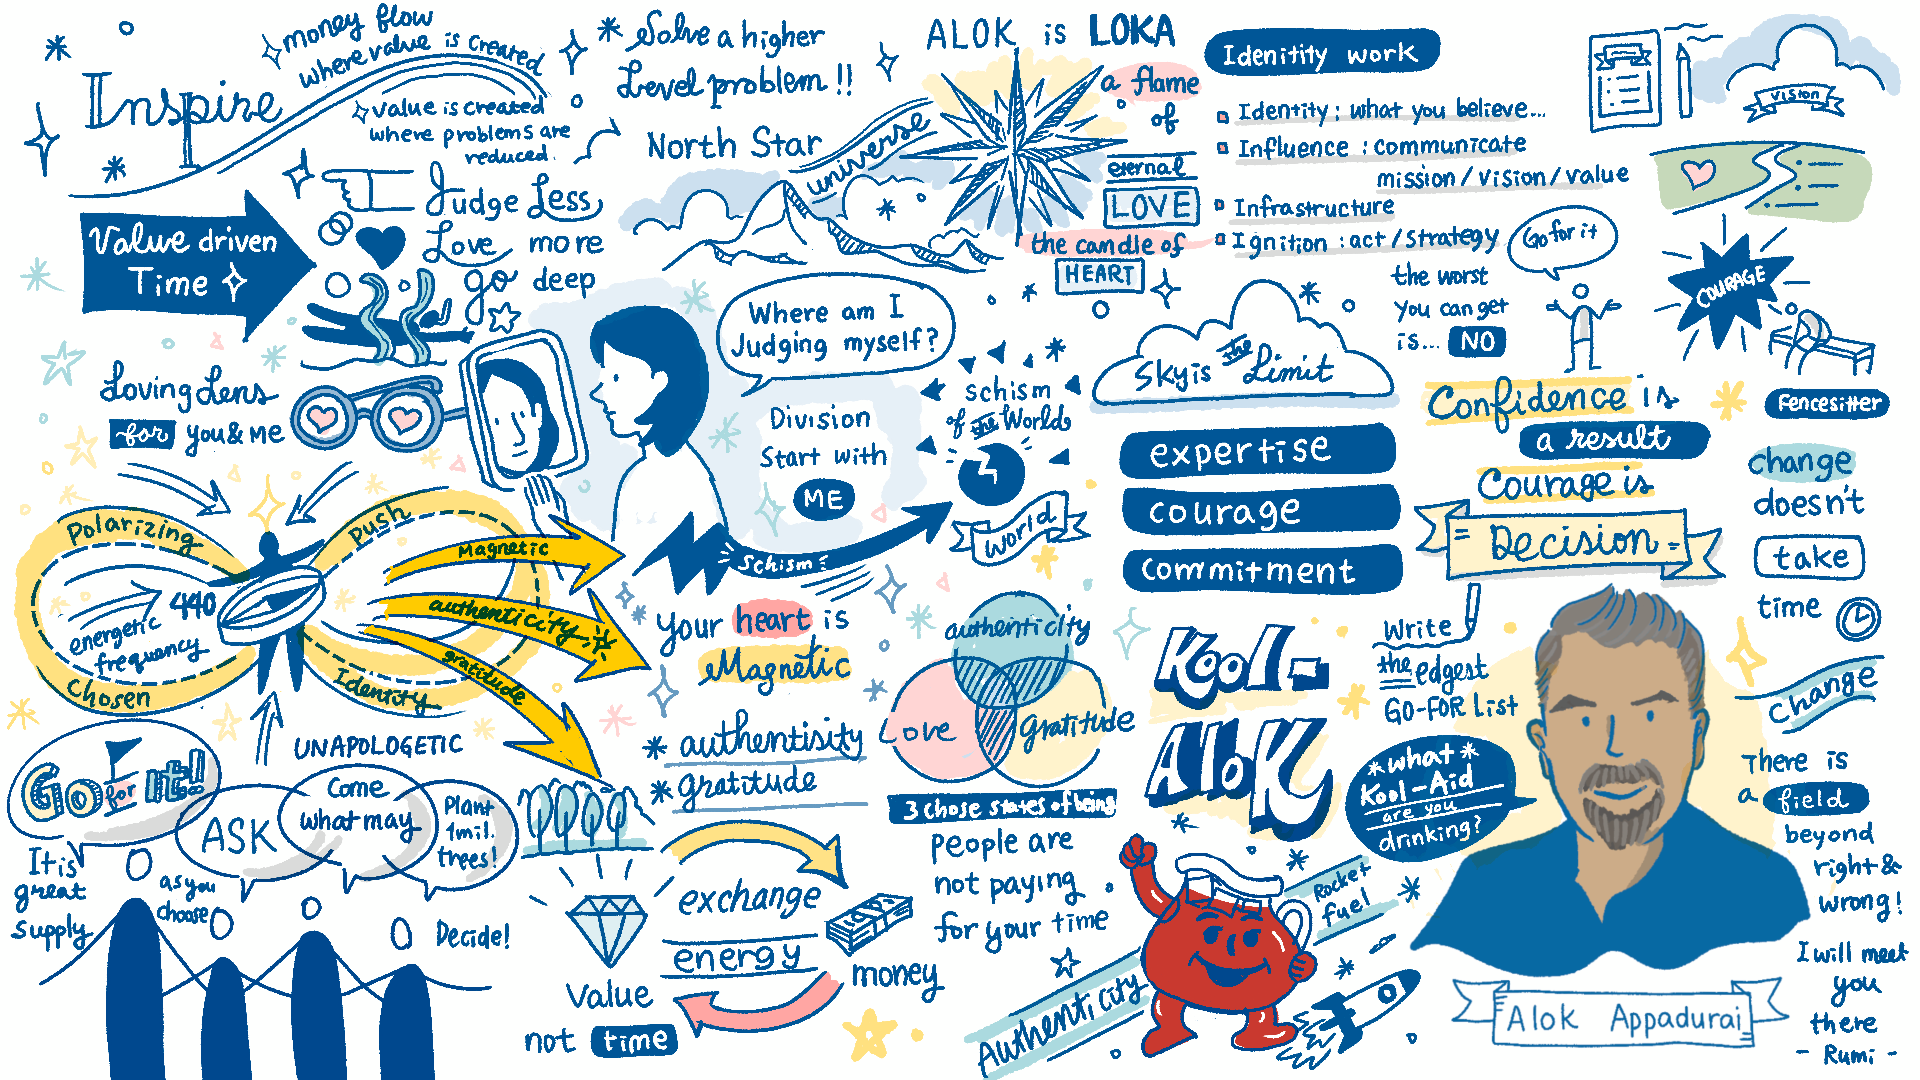 Inspire
money flow
where value is created
value is created
where problems are
reduced.
Solve a higher
Level problem !!
North Star
universe
ALOK is LOKA
a flame
of
eternal
LOVE
the candle of
HEART
Idenitity work
Identity : what you believe...
Influence : communicate
mission / vision / value
Infrastructure
Ignition : act / strategy
vision
Value driven
Time
Judge Less
Love more
go deep
Loving Lens
for you & me
Where am I
Judging myself?
Division
Start with
ME
Schism
of the Worlds
World
Schism
Sky is the Limit
expertise
courage
commitment
the worst
you can get
is... NO
Go for it
COURAGE
Fencesitter
Confidence is
a result
Courage is
Decision
change
doesn't
take
time
change
Polarizing
Push
Chosen
Identity
440
energetic
frequency
Magnetic
authenticity
gratitude
UNAPOLOGETIC
Your heart is
Magnetic
authentisity
gratitude
authenticity
Love
gratitude
3 chose states of being
People are
not paying
for your time
Kool-
AloK
Write
the edgest
GO-FOR list
What
Kool-Aid
are you
drinking?
Go for it!!
ASK
Come
what may
Plant
1mil.
trees!
It is
great
supply
as you
choose
Decide!
exchange
energy
Value
not time
money
Authenticity
Rocket
fuel
Alok Appadurai
There is
a field
beyond
right &
wrong!
I will meet
you
there
- Rumi -